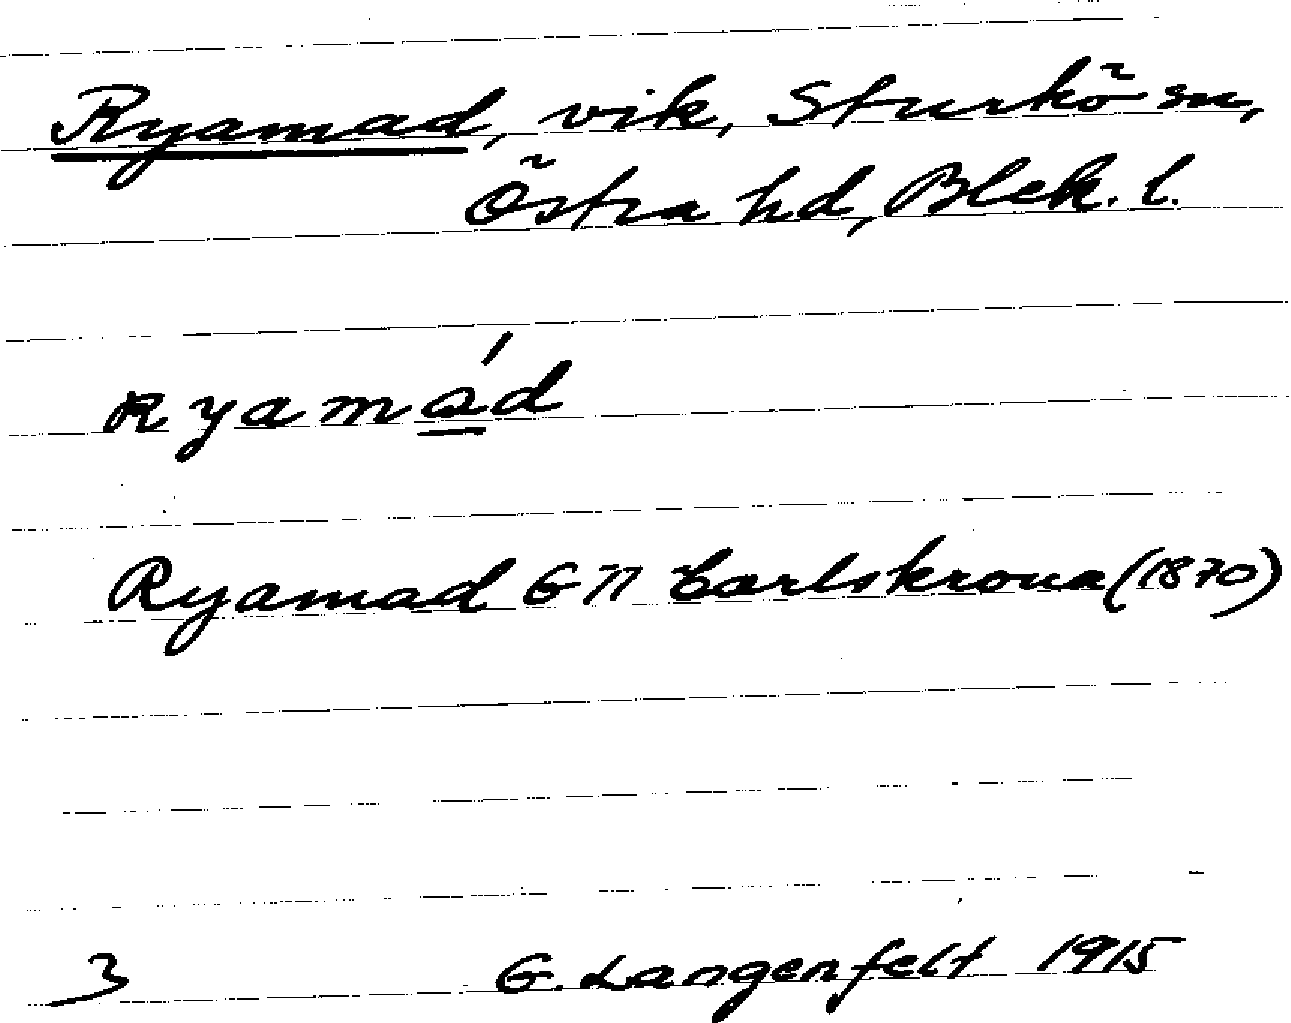 Ryamad, vik, Sturkö sn,
Östra hd, Blek. l.
Ryamá̲d
Ryamad GK Carlskrona (1870)
3 G. Langenfelt 1915